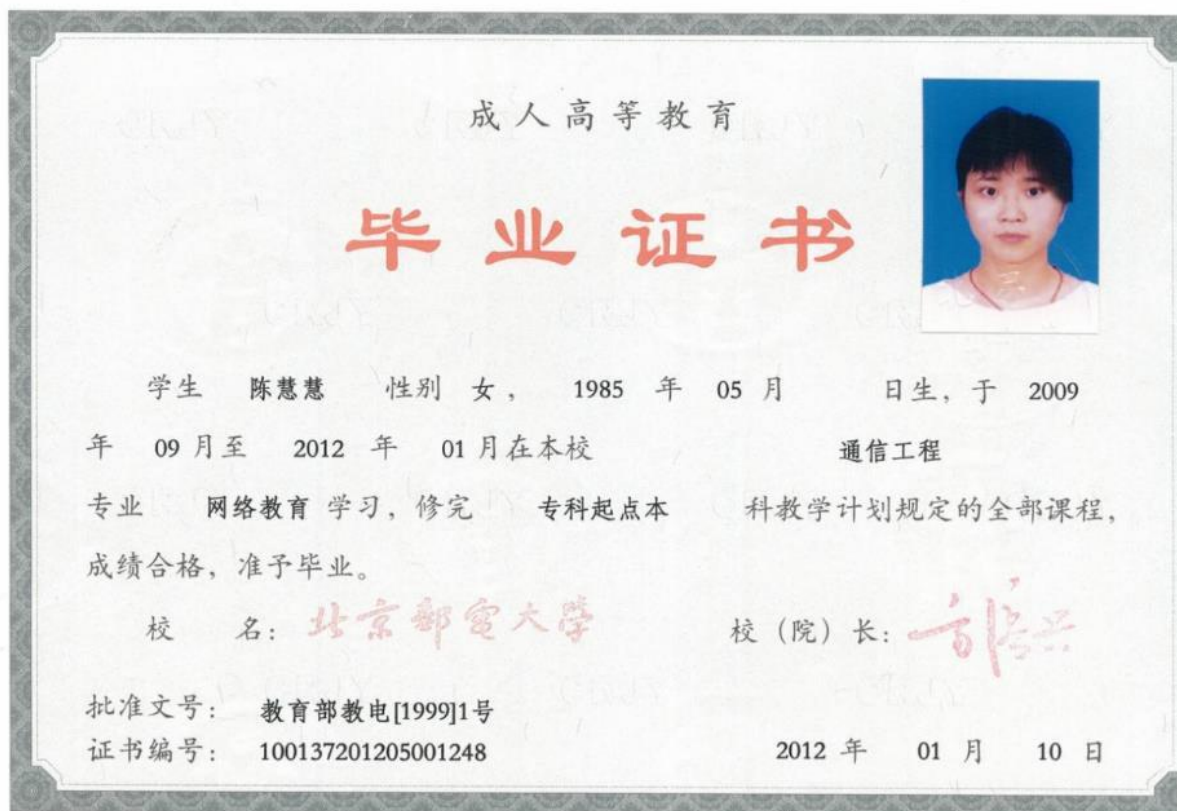 成人高等教育
毕业证书
学生 陈慧慧 性别 女， 1985 年 05 月 日生，于 2009
年 09 月至 2012 年 01 月在本校 通信工程
专业 网络教育 学习，修完 专科起点本 科教学计划规定的全部课程，
成绩合格，准予毕业。
校 名： 北京邮电大学 校（院）长：
批准文号： 教育部教电[1999]1号
证书编号： 100137201205001248 2012 年 01 月 10 日